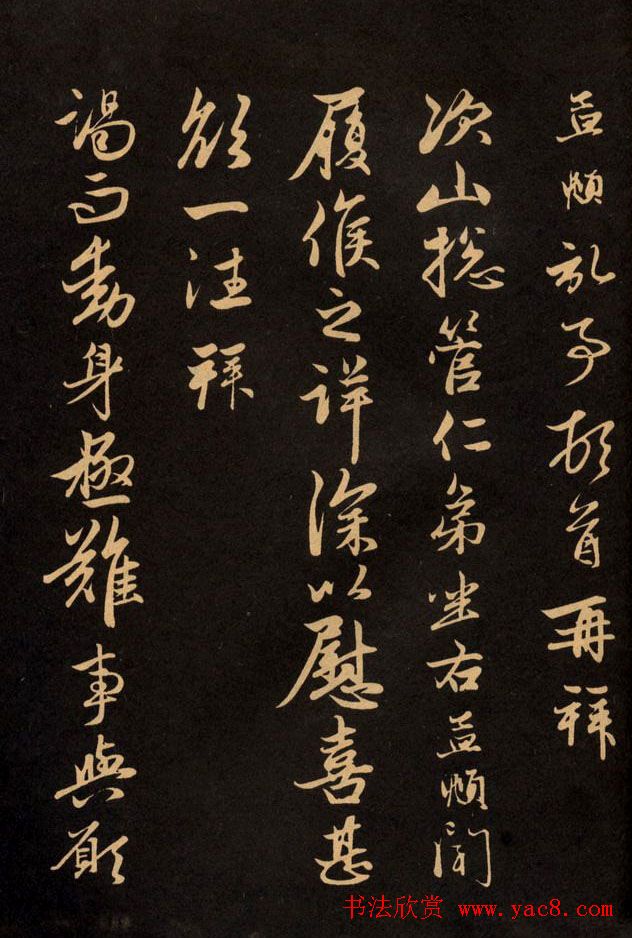 孟頫記事頓首再拜
次山揔管仁弟坐右孟頫聞
履候之詳深以慰喜甚
欲一往拜
謁而動身極難事與願
书法欣赏 www.yac8.com